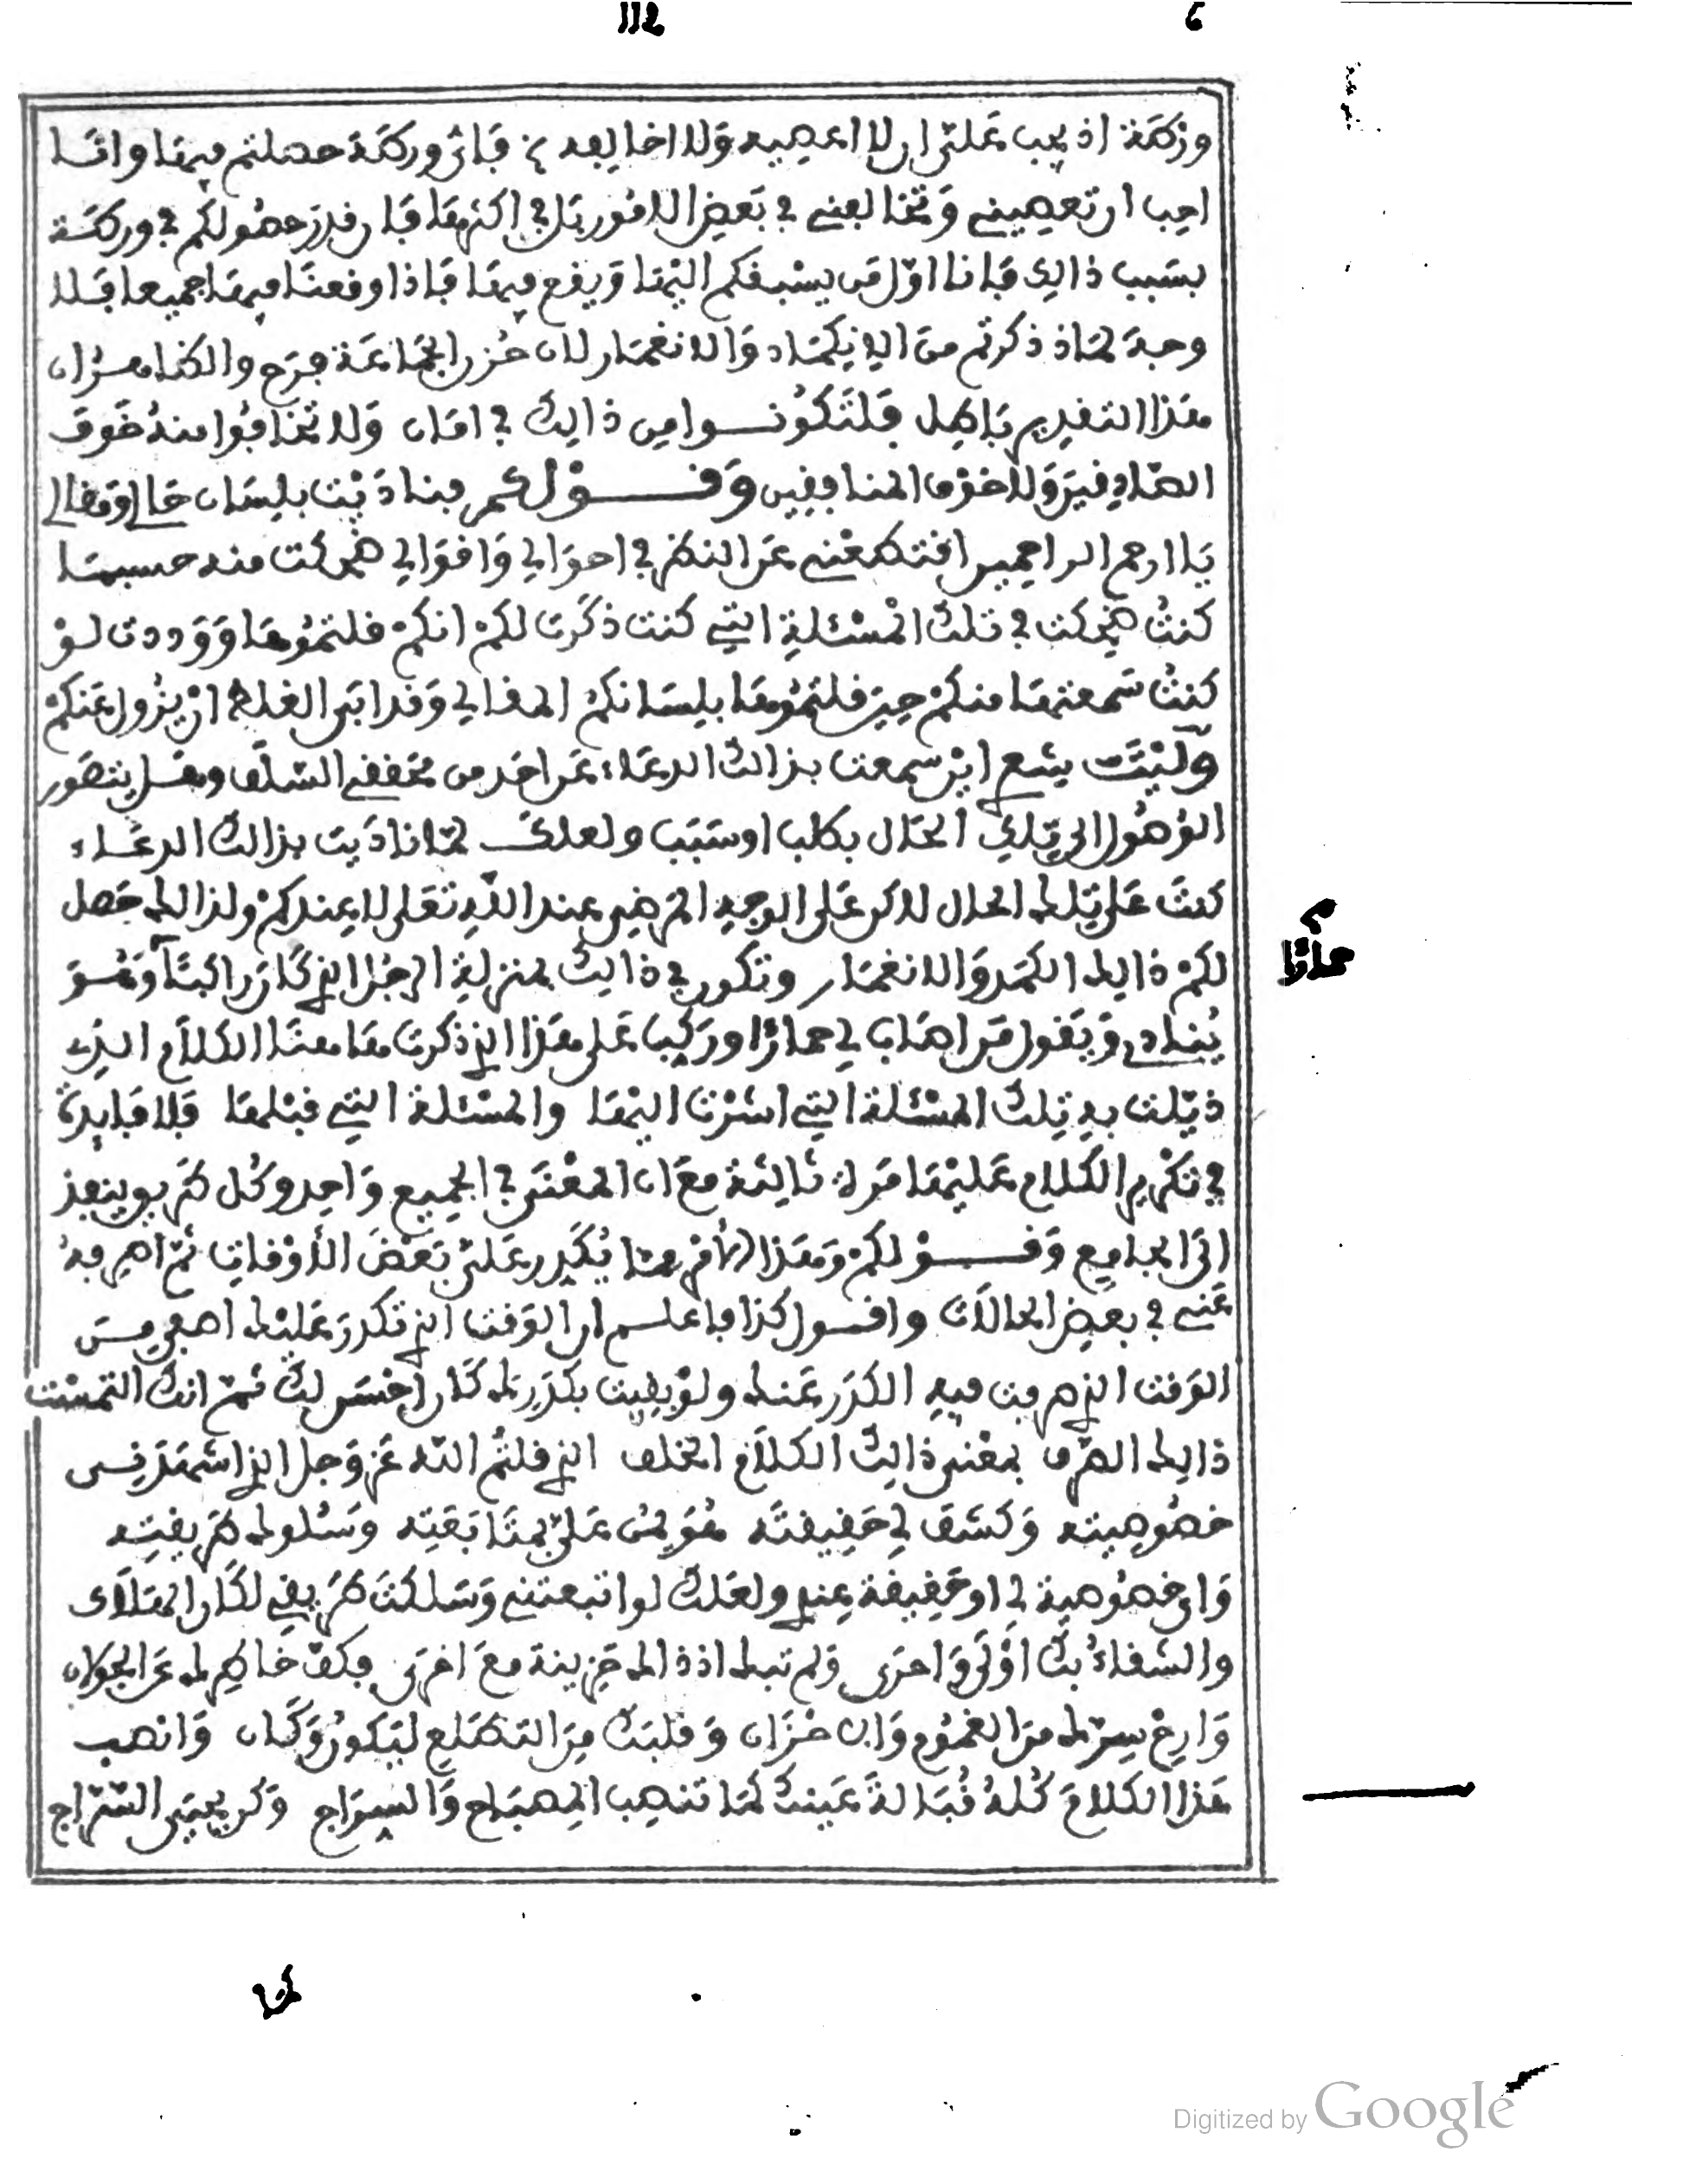 112 6
ورطة اذ يجب علي ان لا اعصيه ولا اخالفه فأي ورطة حصلتم فيها وانا
احب ان تعصيني وتخالفني في بعض الامور بل في اكثرها فان قدر حصولكم في ورطة
بسبب ذالك فانا اول من يسبقكم اليها ويقع فيها فاذا وقعنا فيها جميعا فلا
وجه لما ذكرتم من الانكماد والانغمار لان حزن الجماعة فرح والكفا
هذا التقدير باطل فلتكونوا من ذالك في امان ولا تخافوا منه خوف
الصادقين ولا خوف المنافقين وقولكم فناديت بلسان حالي ومقالي
يا ارحم الراحمين اقتطعني عن النظر في احوالي واقوالي ضحكت منه حسبما
كنت ضحكت في تلك المسئلة التي كنت ذكرت لكم انكم قلتموها ووددت لو
كنت سمعتها منكم حين قلتموها بلسانكم المقالي وقد ابى الغلط ان يزول عنكم
وليت شعري اين سمعت بذالك الدعاء عن احد من محققي السلف وهل يتصور
الوصول الى تلك الحال بطلب او سبب ولعلك لما ناديت بذالك الدعاء
كنت على تلك الحال لاكن على الوجه المرضي عند الله تعلى لا عندكم ولذالك حصل
لكم ذالك الكمد والانغمار وتكون في ذالك بمنزلة الرجل الذي كان راكبا وهو
ينادي ويقول من اصاب لي حمارا وركب على هذا الذي ذكرت هاهنا الكلام الذي
حمارا
ذيلت به تلك المسئلة التي اشرت اليها والمسئلة التي قبلها فلا فايدة
في تكرير الكلام عليها مرة ثالثة مع ان المعنى في الجميع واحد وكل طريق ينفذ
الى الجامع وقولكم وهذا الامر مما يكدر علي بعض الأوقات ثم اصرفه
عني في بعض الحالات واقول كذا فاعلم ان الوقت الذي تكدر عليك اصفى من
الوقت الذي صرفت فيه الكدر عنك ولو بقيت بكدرك لكان احسن لك ثم انك التمست
ذالك الصرف بمعنى ذالك الكلام الخلف الذي قلتم الله عز وجل الذي اشهدني
خصوصيته وكشف لي حقيقته هو يمن علي بمتابعته وسلوك طريقته
واي خصوصية لي او حقيقة عندي ولعلك لو اتبعتني وسلكت طريقي لكان الهلاك
والشقاء بك اولى واحرى ولم تبك اذ ذاك حزينة مع اخرى فكف خاطرك عن الجولان
وارح سرك من الغموم والاحزان وقلبك من التطلع ليكون وكان وانصب
هذا الكلام كله قبالة عينك كما تنصب المصباح والسراج وكن بعين السراج